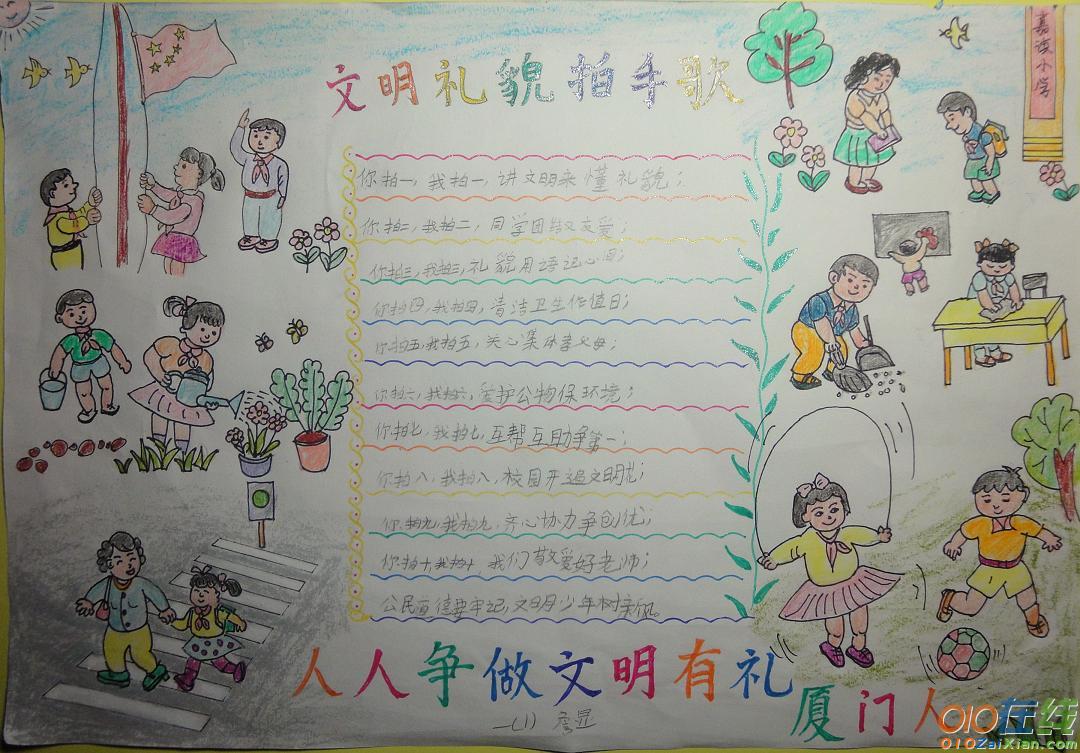 文明礼貌拍手歌
嘉滨小学
你拍一，我拍一，讲文明来懂礼貌；
你拍二，我拍二，同学团结又友爱；
你拍三，我拍三，礼貌用语记心间；
你拍四，我拍四，清洁卫生作值日；
你拍五，我拍五，关心集体孝父母；
你拍六，我拍六，爱护公物保环境；
你拍七，我拍七，互帮互助争第一；
你拍八，我拍八，校园开遍文明花；
你拍九，我拍九，齐心协力争创优；
你拍十，我拍十，我们敬爱好老师；
公民道德要牢记，文明少年树新风。
人人争做文明有礼
厦门人
一(1)
010在线
010ZaiXian.com